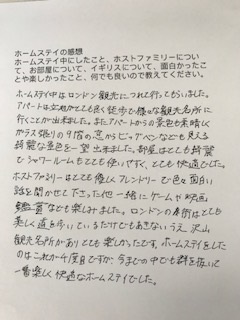 ホームステイの感想
ホームステイ中にしたこと、ホストファミリーについ
て、お部屋について、イギリスについて、面白かったこ
とや楽しかったこと、何でも良いので教えてください。
ホームステイ中はロンドン観光につれて行ってもらいました。
アパートは立地がとても良く徒歩で様々な観光名所に
行くことが出来ました。またアパートからの景色も素晴しく
ガラス張りの9階の窓からビッグベンなども見える
綺麗な景色を一望出来ました。お部屋はとても綺麗
でシャワールームもとても使いやすく、とても快適でした。
ホストファミリーはとても優しくフレンドリーで色々面白い
話を聞かせて下さった他一緒にゲームや映画
鑑賞なども楽しみました。ロンドンの街はとても
美しく道を歩いているだけでもあきないうえ、沢山
観光名所がありとても楽しかったです。ホームステイをした
のはこれが 度目ですが、今までの中でも群を抜いて
一番楽しく快適なホームステイでした。